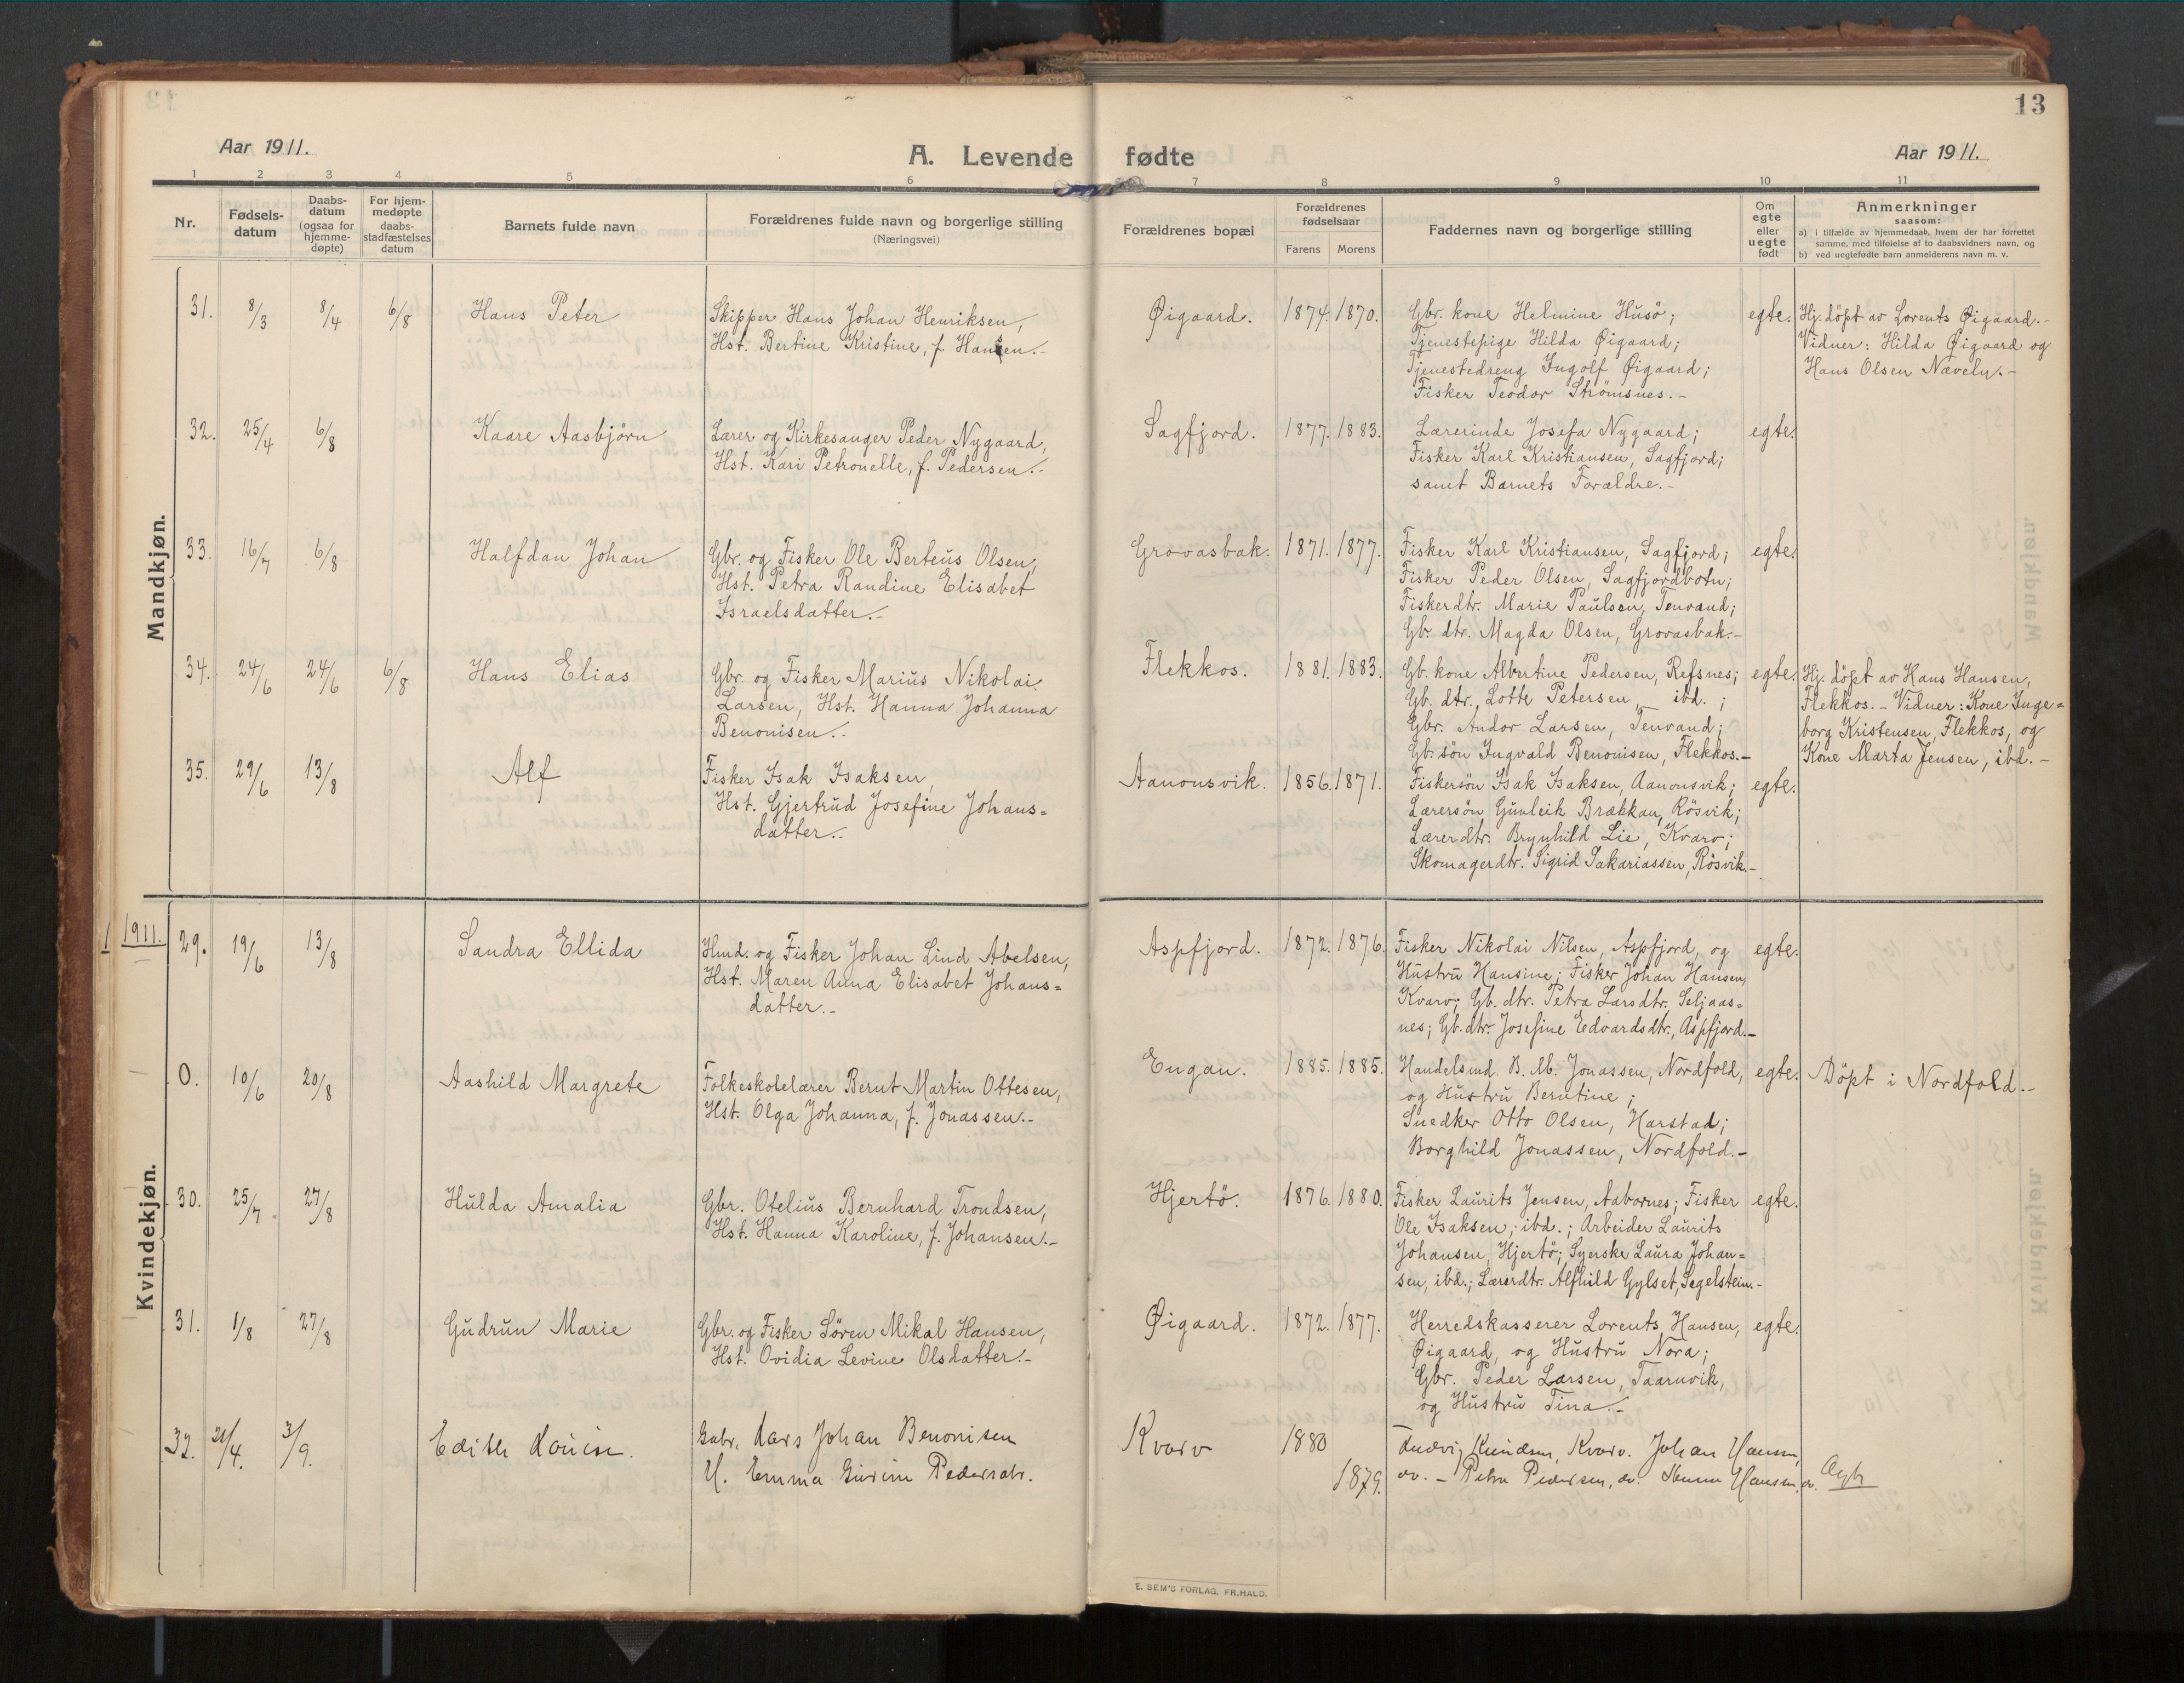 13
Aar 1911.
A. Levende fødte
Aar 1911.
1 2 3 4 5 6 7 8 9 10 11
Nr.
Fødsels-
datum
Daabs-
datum
(ogsaa for
hjemme-
døpte)
For hjem-
medøpte
daabs-
stadfæstelses
datum
Barnets fulde navn
Forældrenes fulde navn og borgerlige stilling
(Næringsvei)
Forældrenes bopæl
Forældrenes
fødselsaar
Farens Morens
Faddernes navn og borgerlige stilling
Om
egte
eller
uegte
født
Anmerkninger
saasom:
a) i tilfælde av hjemmedaab, hvem der har forrettet
samme, med tilføielse af to daabsvidners navn, og
b) ved uegtefødte barn anmelderens navn m. v.
Mandkjøn.
31. 8/3 8/4 6/8 Hans Peter
Skipper Hans Johan Henriksen,
Hst. Bertine Kristine, f. Hansen.-
Øigaard. 1874. 1870.
Gbr. kone Helmine Husö;
Tjenestepige Hilda Øigaard;
Tjenestedreng Ingolf Øigaard;
Fisker Teodor Strömsnes.-
egte.
Hj. döpt av Lorents Øigaard.-
Vidner: Hilda Øigaard og
Hans Olsen Nævely.-
32. 25/4 6/8 Kaare Aasbjörn
Lærer og Kirkesanger Peder Nygaard,
Hst. Kari Petronelle, f. Pedersen.-
Sagfjord. 1877. 1883.
Lærerinde Josefa Nygaard;
Fisker Karl Kristiansen, Sagfjord;
samt Barnets Forældre.-
egte.
33. 16/7 6/8 Halfdan Johan
Gbr. og Fisker Ole Berteus Olsen,
Hst. Petra Randine Elisabet
Israelsdatter.-
Grovasbak. 1871. 1877.
Fisker Karl Kristiansen, Sagfjord;
Fisker Peder Olsen, Sagfjordbotn;
Fiskerdtr. Marie Paulsen, Tenvand;
Gb. dtr. Magda Olsen, Grovasbak.-
egte.
34. 24/6 24/6 6/8 Hans Elias
Gbr. og Fisker Marius Nikolai
Larsen, Hst. Hanna Johanna
Benonisen.-
Flekkos. 1881. 1883.
Gb. kone Albertine Pedersen, Refsnes;
Gb. dtr. Lotte Petersen, ibd.;
Gbr. Andor Larsen, Tenvand;
Gb. sön Ingvald Benonisen, Flekkos.-
egte.
Hj. döpt av Hans Hansen,
Flekkos. - Vidner: Kone Inge=
borg Kristensen, Flekkos, og
Kone Marta Jensen, ibd.-
35. 29/6 13/8 Alf
Fisker Isak Isaksen,
Hst. Gjertrud Josefine Johans=
datter.-
Aanonsvik. 1856. 1871.
Fiskersön Isak Isaksen, Aanonsvik;
Lærersön Gunleik Brækkan, Rösvik;
Lærerdtr. Brynhild Lie, Kvarv;
Skomagerdtr. Sigrid Sakariassen, Rösvik.-
egte.
Kvindekjøn.
1 1911. 29. 19/6 13/8 Sandra Ellida
Hmd. og Fisker Johan Lind Abelsen,
Hst. Maren Anna Elisabet Johans=
datter.-
Aspfjord. 1872. 1876.
Fisker Nikolai Nilsen, Aspfjord, og
Hustru Hansine; Fisker Johan Hansen,
Kvarv; Gb. dtr. Petra Larsdtr. Seljaas=
nes; Gb. dtr. Josefine Edvardsdtr., Aspfjord.-
egte.
0. 10/6 20/8 Aashild Margrete
Folkeskolelærer Bernt Martin Ottesen,
Hst. Olga Johanna, f. Jonassen.-
Engan. 1885. 1885.
Handelsmd. B. M. Jonassen, Nordfold,
og Hustru Berntine;
Snedker Otto Olsen, Harstad;
Borghild Jonassen, Nordfold.-
egte.
Döpt i Nordfold.-
30. 25/7 27/8 Hulda Amalia
Gbr. Otelius Bernhard Trondsen,
Hst. Hanna Karoline, f. Johansen.-
Hjertö. 1876. 1880.
Fisker Laurits Jensen, Aabornes; Fisker
Ole Isaksen, ibd.; Arbeider Laurits
Johansen, Hjertö; Syerske Laura Johan=
sen, ibd.; Lærerdtr. Alfhild Gylset, Segelstein.-
egte.
31. 1/8 27/8 Gudrun Marie
Gbr. og Fisker Sören Mikal Hansen,
Hst. Ovidia Levine Olsdatter.-
Øigaard. 1872. 1877.
Herredskasserer Lorents Hansen,
Øigaard, og Hustru Nora;
Gbr. Peder Larsen, Taarnvik,
og Hustru Tina.-
egte.
32. 21/4. 3/9. Edith Louise.
Gabr. Lars Johan Benonisen
H. Emma Gurine Pedersdtr.
Kvarv 1880
1879.
Ludvig Knudsen, Kvarv. Johan Hansen,
do. - Petra Pedersen, do. Hansen, do.
Ægte
E. SEM'S FORLAG, FR.HALD.